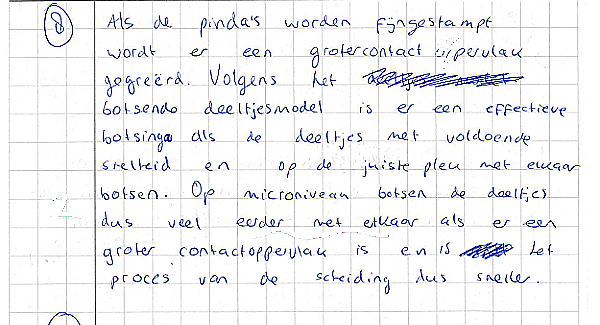 8 Als de pinda's worden fijngestampt
wordt er een grotercontact oppervlak
gegreërd. Volgens het
botsende deeltjesmodel is er een effectieve
botsinga als de deeltjes met voldoende
snelheid en op de juiste plek met elkaar
botsen. Op microniveau botsen de deeltjes
dus veel eerder met elkaar als er een
groter contactoppervlak is en is het
proces van de scheiding dus sneller.